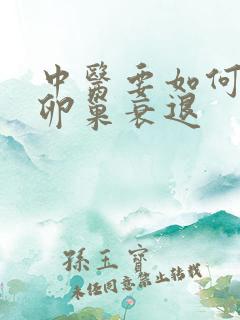 中醫要如何
卵巢衰退
孫玉寶
未经同意禁止转载